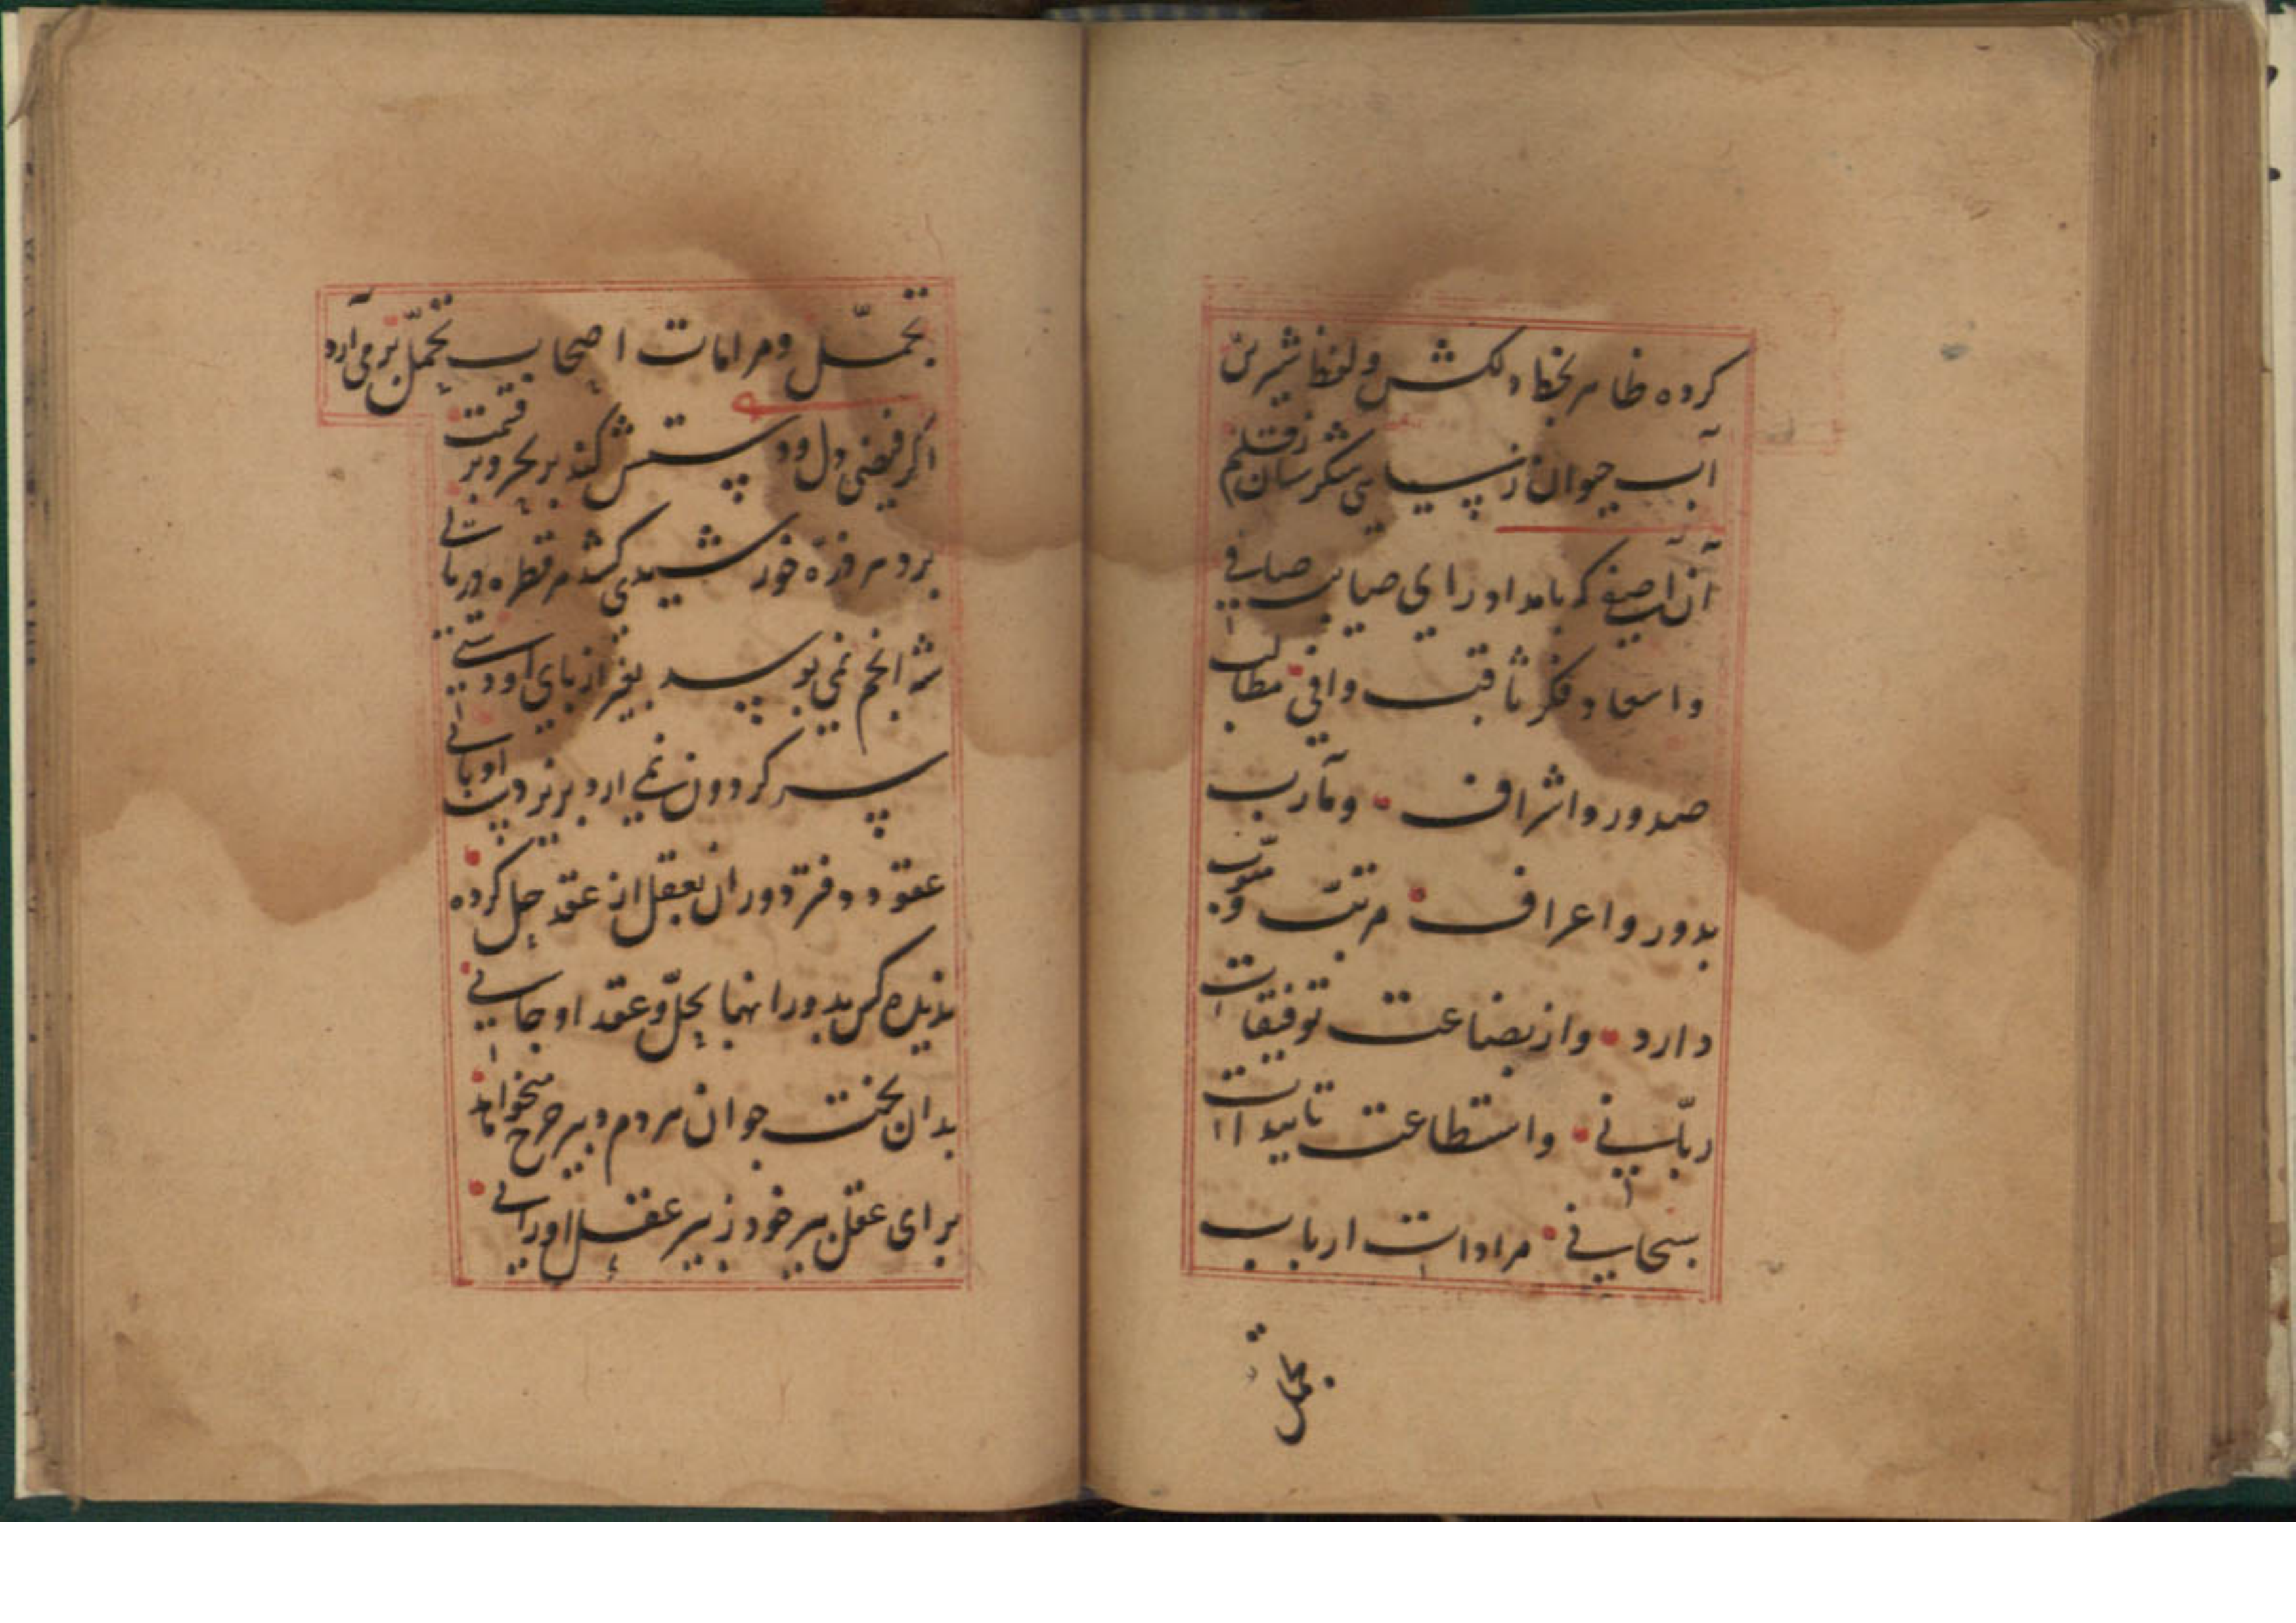 کرده ظاهر بخط دلکش و لفظ شیرین
آب حیوان ز سیاهی شکرستان ز قلم
آن آصفی که بامداد رای صایب صافی
و اسعاد فکر ثاقب وافی مطالب
صدور و اشراف و مآرب
بدور و اعراف مرتب و مبوب
دارد و از بضاعت توفیقات
ربانی و استطاعت تاییدات
سبحانی مرادات ارباب
تجمل
تجمل و مرامات اصحاب تحمل بر می آرد
اگر فیض دل و دستش کند بر بحر و بر قسمت
برد هر ذره خورشیدی کشد هر قطره دریایی
شه انجم نمی بوسد بغیر از پای او دستی
سر گردون نمی ارد برنزدیت او پایی
عقود دفتر دوران بعقل از عقد حل کرده
ندیده کس بدورانها بحل و عقد او جایی
بدان بخت جوان مردم دبیر چرخ میخواند
برای عقل پیر خود ز پیر عقل او رایی